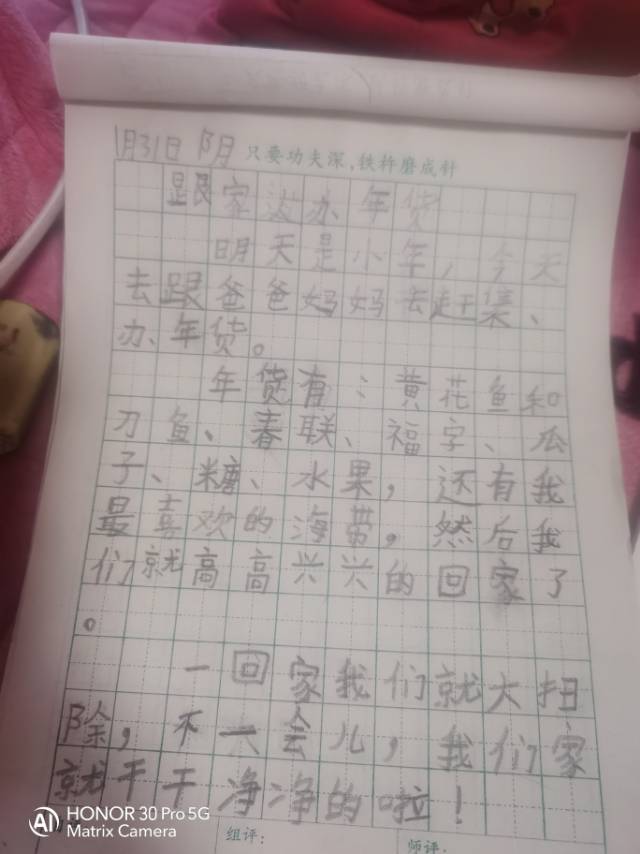 1月31日 阴 只要功夫深，铁杵磨成针
跟家人办年货
明天是小年，今天
去跟爸爸妈妈去赶集、
办年货。
年货有：黄花鱼和
刀鱼、春联、福字、瓜
子、糖、水果，还有我
最喜欢的海带，然后我
们就高高兴兴的回家了
。
一回家我们就大扫
除，不一会儿，我们家
就干干净净的啦！
组评： 师评：
HONOR 30 Pro 5G
Matrix Camera